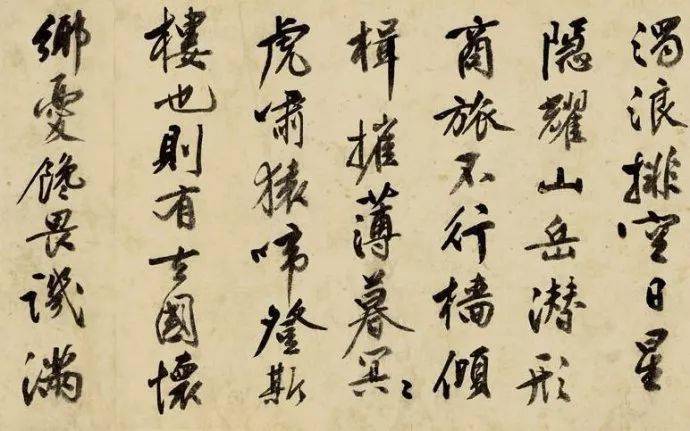 濁浪排空日星
隱耀山岳潛形
商旅不行檣傾
楫摧薄暮冥〻
虎嘯猿啼登斯
樓也則有去國懷
鄉憂讒畏譏滿